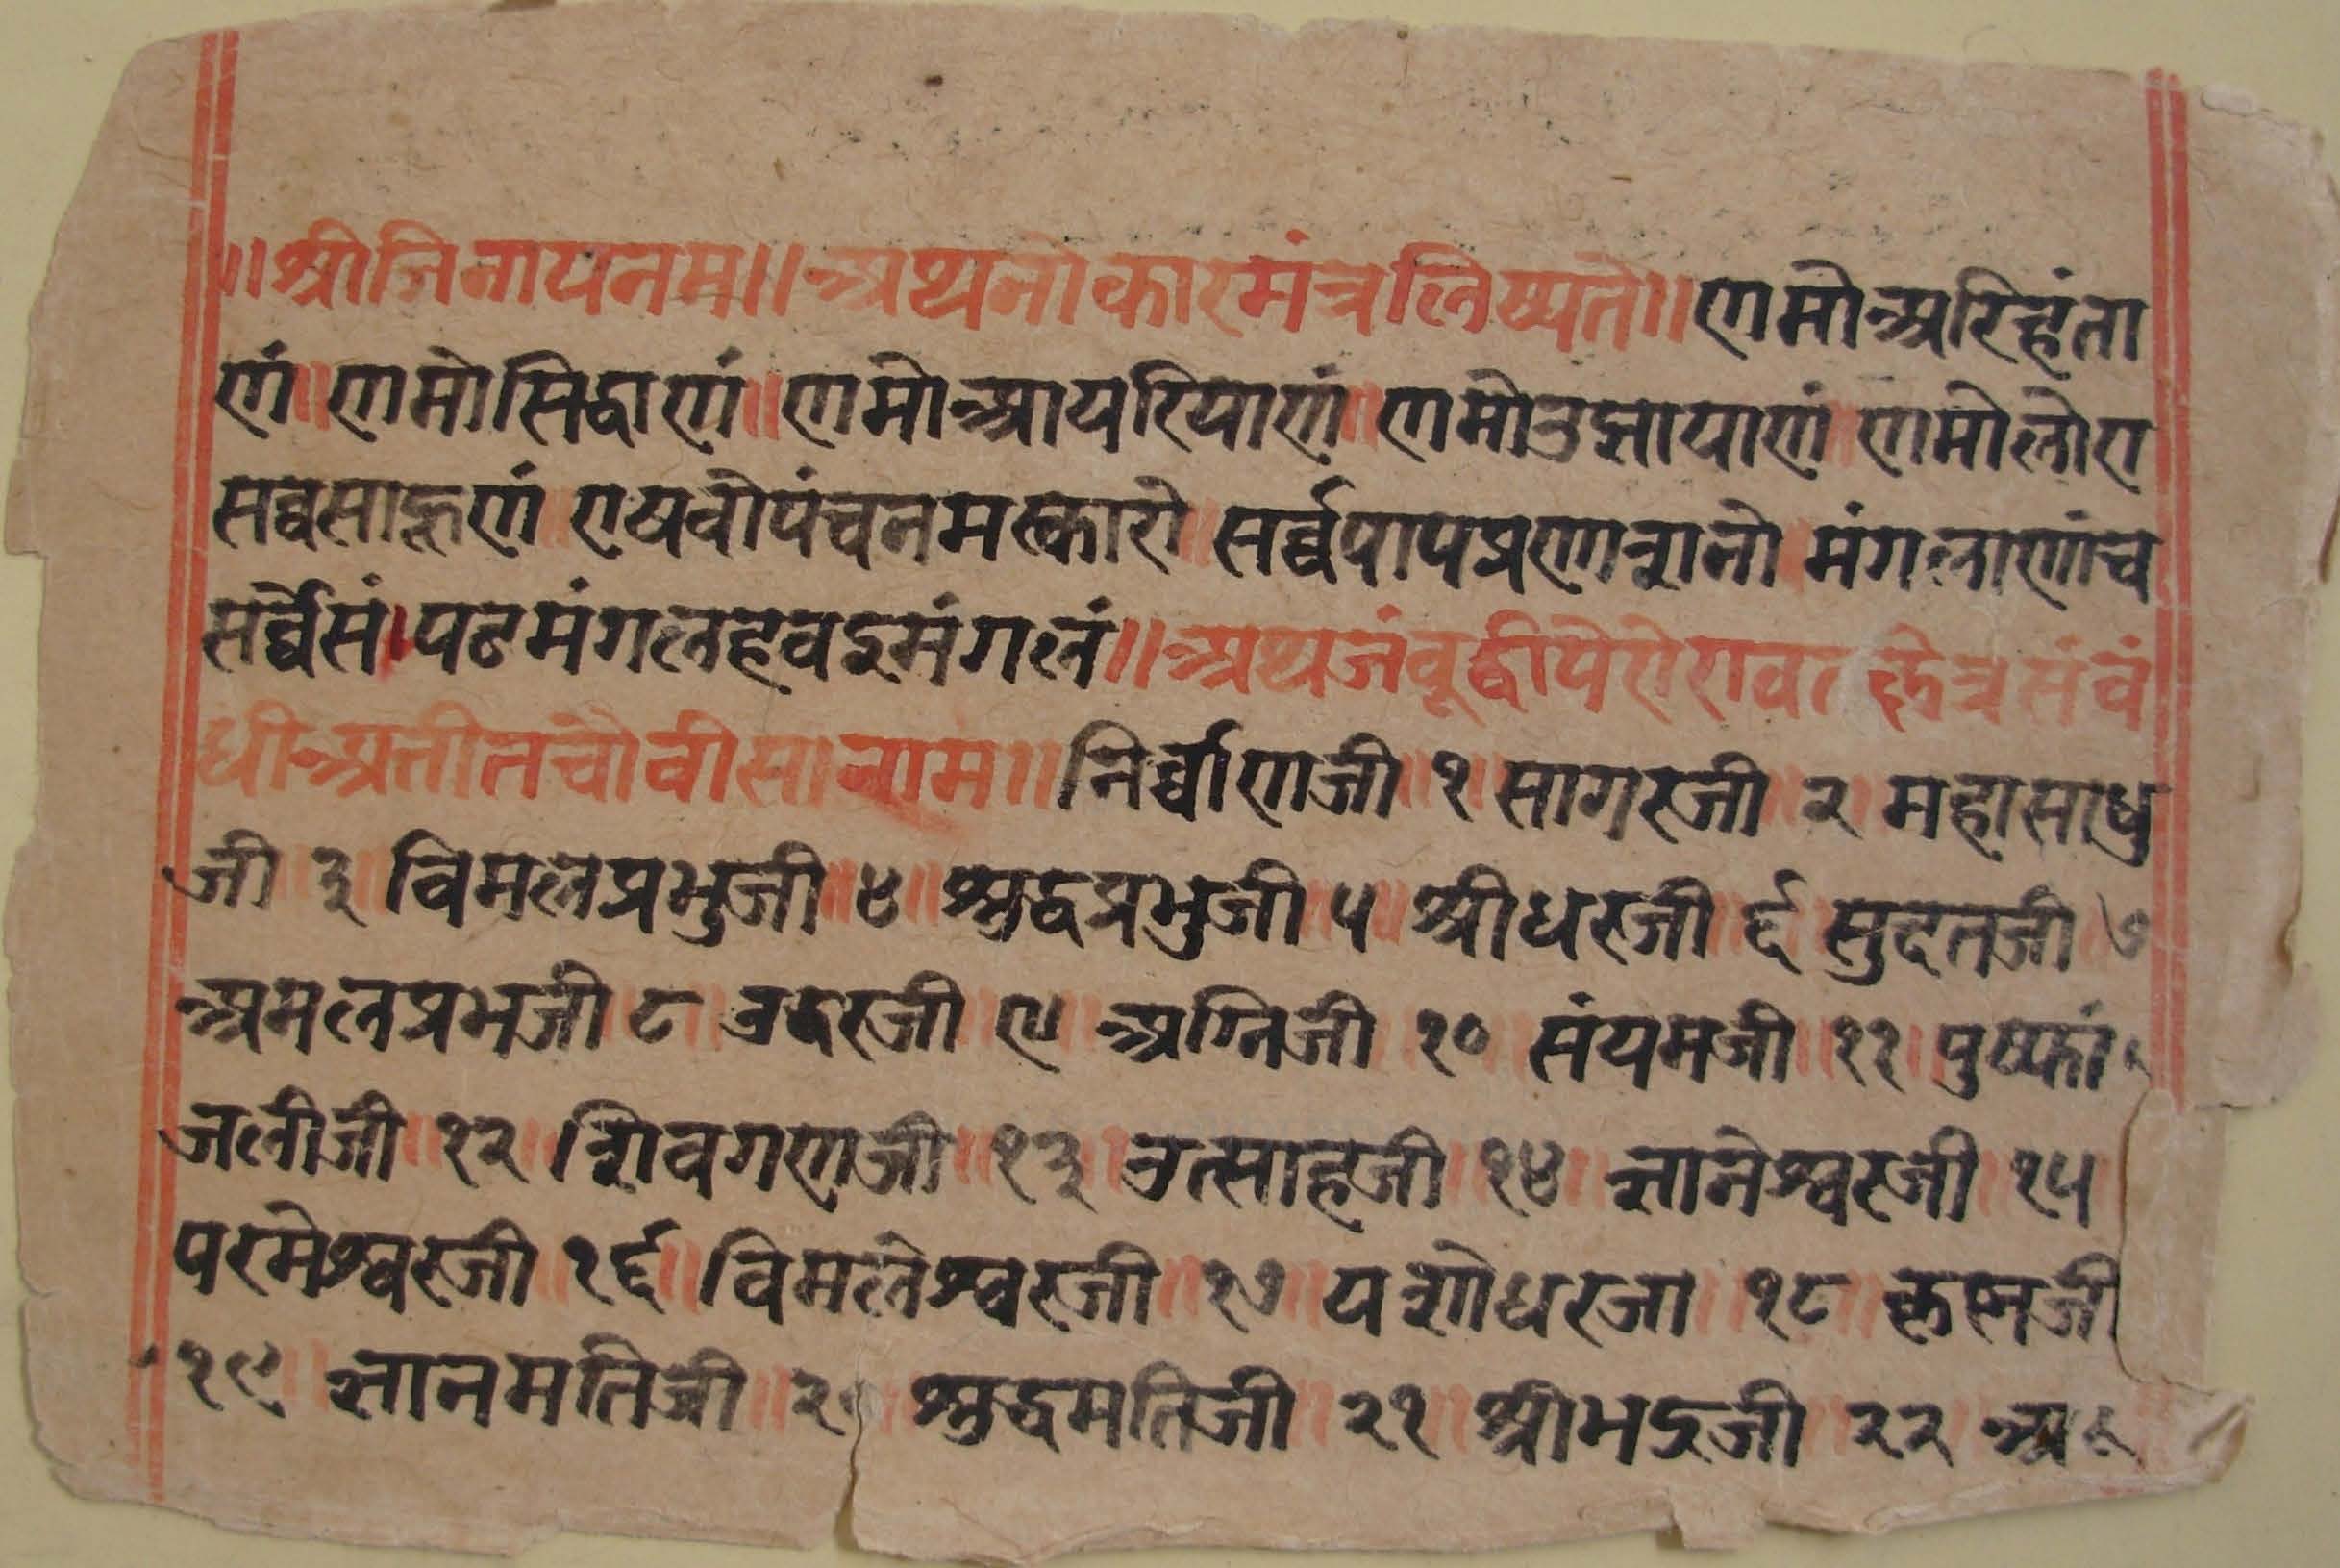 ॥श्रीजिनायनम॥अथनोकारमंत्रलिष्यते॥णमोअरिहंता
णं॥णमोसिद्धाणं॥णमोआयरियाणं॥णमोउझायाणं॥णमोलोए
सव्वसाहूणं॥एयवोपंचनमस्कारो॥सर्व्वपापप्रणाशनो॥मंगलाणंच
सर्व्वेसं।पठमंगलहवइमंगलं॥अथजंबूद्वीपेरोरावत क्षेत्रसंबं
धीअतीतचौवीसीनाम॥निर्व्वाणजी॥१॥सागरजी॥२॥महासाधु
जी॥३॥विमलप्रभुजी॥४॥श्रुद्धप्रभुजी॥५॥श्रीधरजी॥६॥सुदतजी॥७
अमलप्रभजी॥८॥उदरजी॥९॥अग्निजी॥१०॥संयमजी॥११॥पुष्फां
जलीजी॥१२॥शिवगणजी॥१३॥उत्साहजी॥१४॥ज्ञानेश्वरजी॥१५
परमेश्वरजी॥१६॥विमलेश्वरजी॥१७॥यशोधरजी॥१८॥कृष्नजी
१९॥ज्ञानमतिजी॥२०॥श्रुद्धमतिजी॥२१॥श्रीभद्रजी॥२२॥